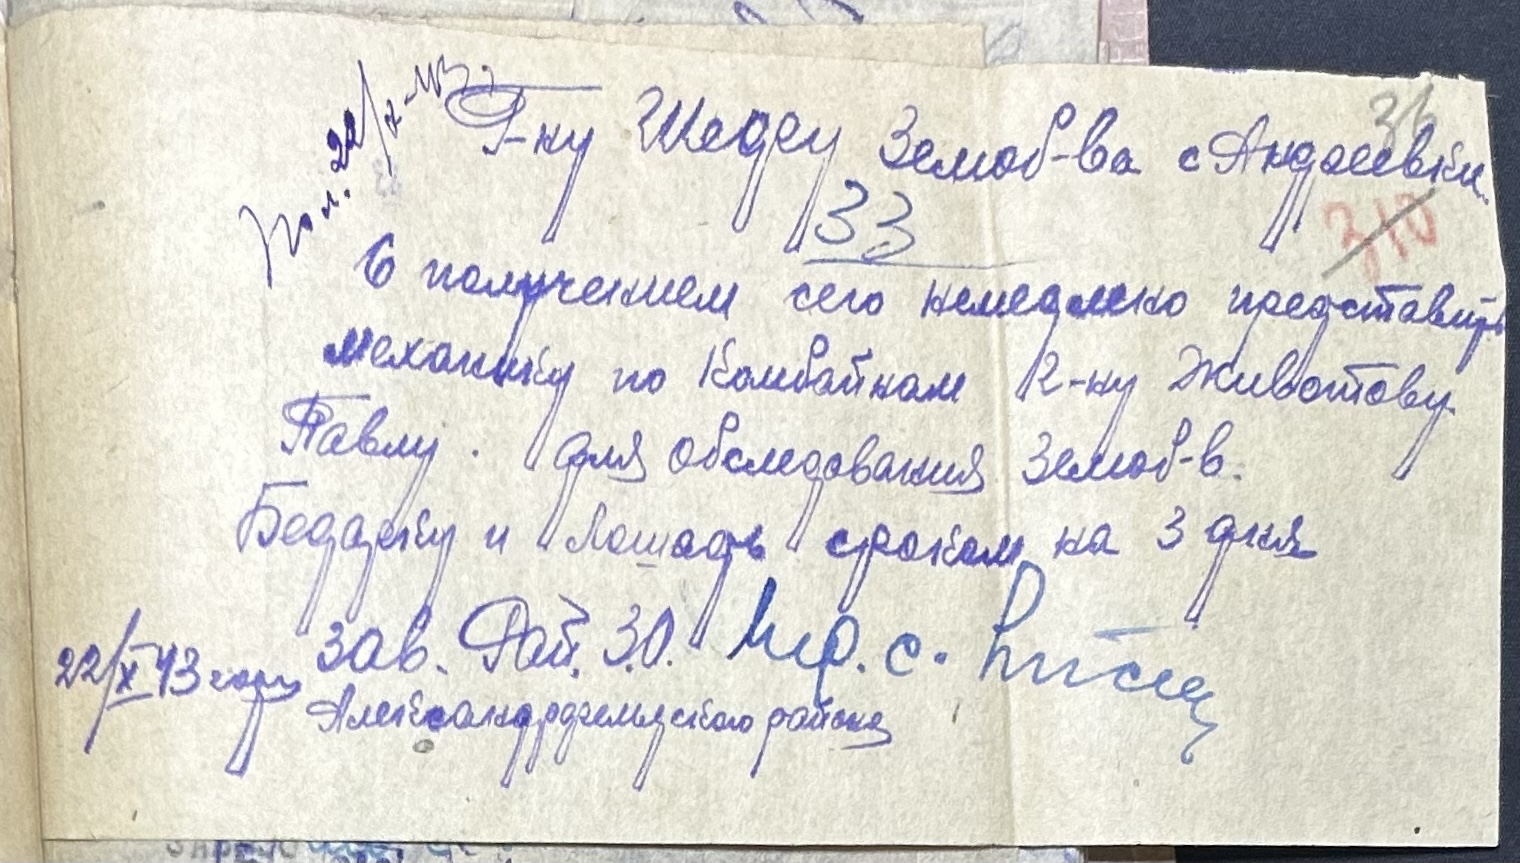 Пол. 22/X-43
36
Г-ну Шефу Земоб-ва с Андреевки.
33
310
С получением сего немедлено представить
механику по Комбайнам г-ну Животову
Павлу. для обследования Земоб-в.
Бедарку и Лошадь сроком на 3 дня
22/XI 43 году зав. Рай. З.О.
Александр района